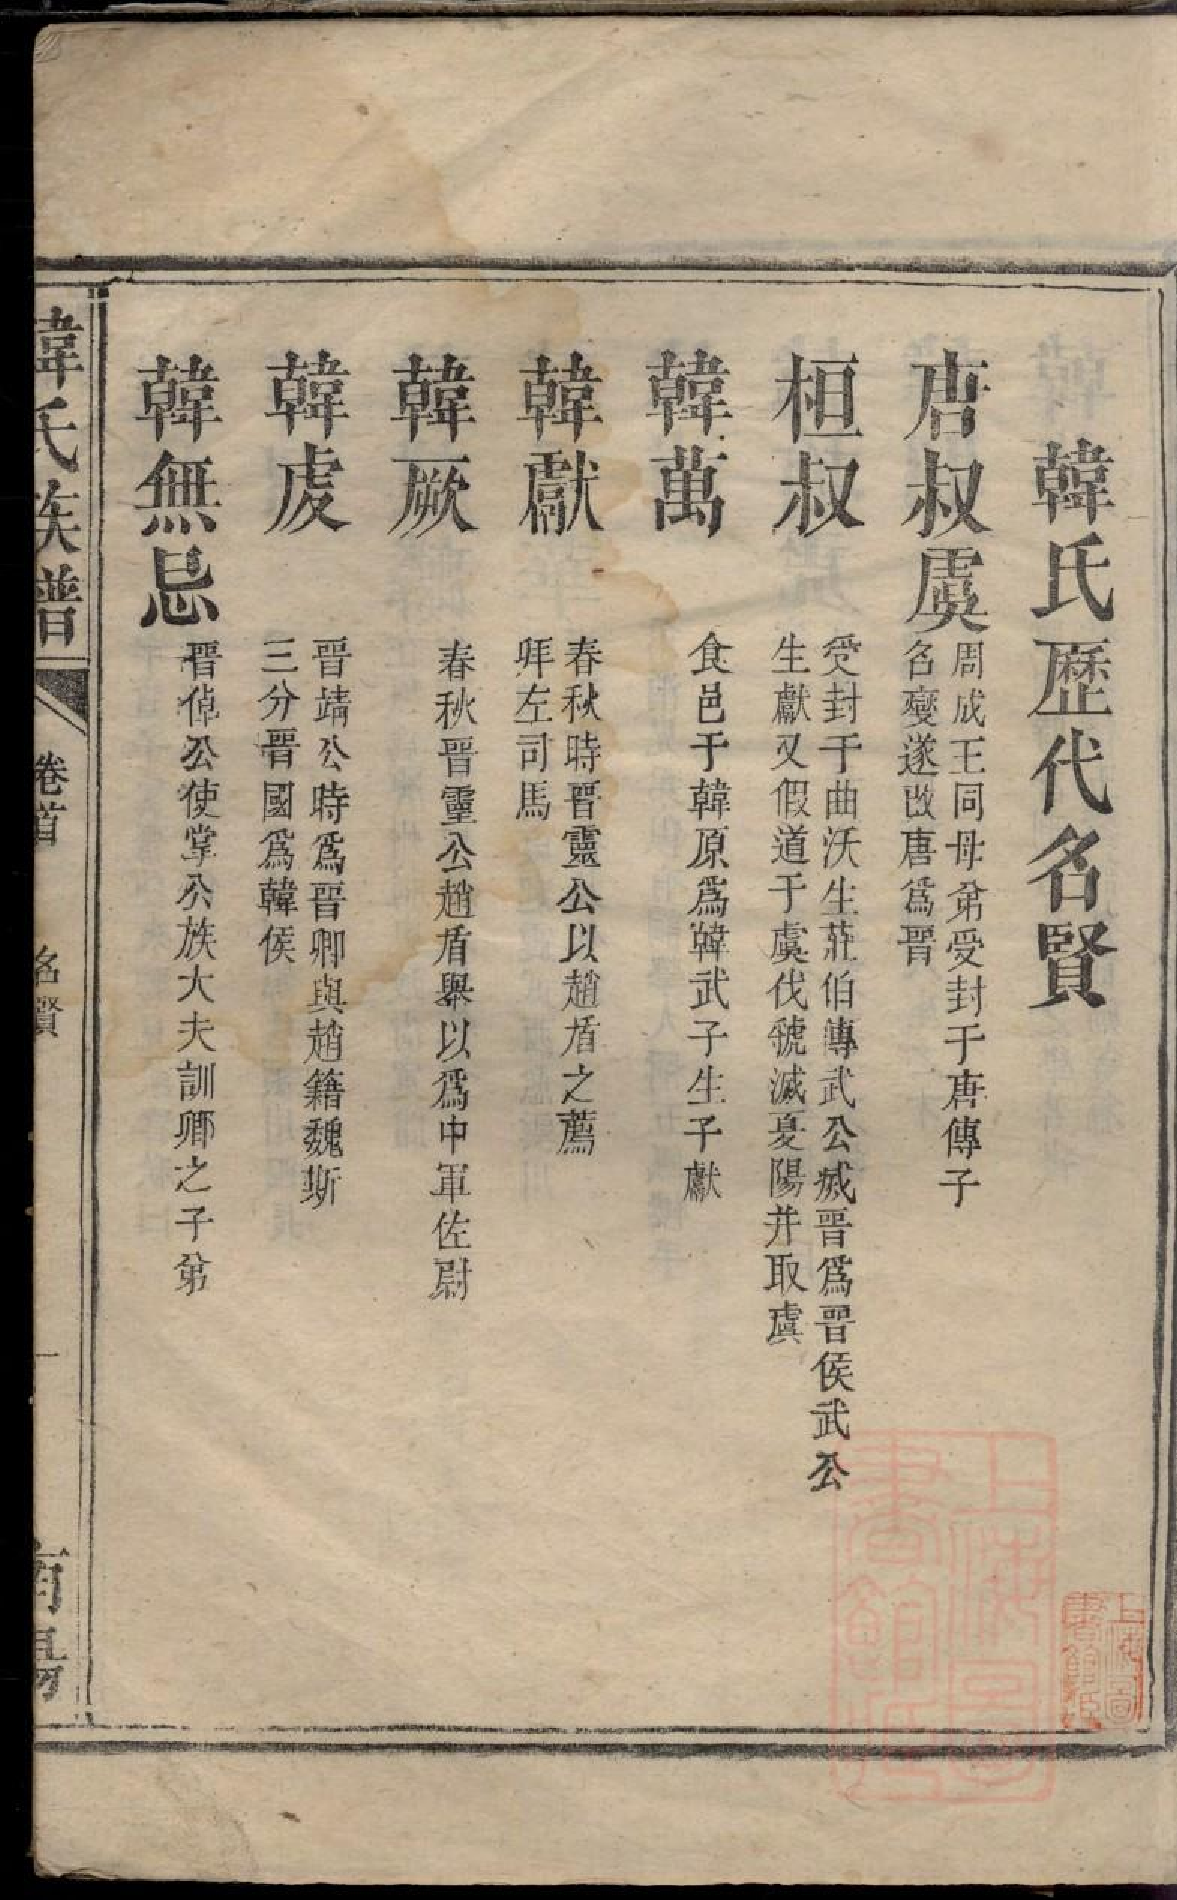 韓氏歷代名賢
唐叔虞
周成王同母弟受封于唐傳子
名燮遂改唐爲晉
桓叔
受封于曲沃生莊伯傳武公滅晉爲晉侯武公
生獻又假道于虞伐虢滅夏陽并取虞
韓萬
食邑于韓原爲韓武子生子獻
韓獻
春秋時晉靈公以趙盾之薦
拜左司馬
韓厥
春秋晉靈公趙盾舉以爲中軍佐尉
韓虔
晉靖公時爲晉卿與趙籍魏斯
三分晉國爲韓侯
韓無忌
晉悼公使掌公族大夫訓卿之子弟
韓氏族譜
卷首
名賢
一
南陽
上海圖書館藏